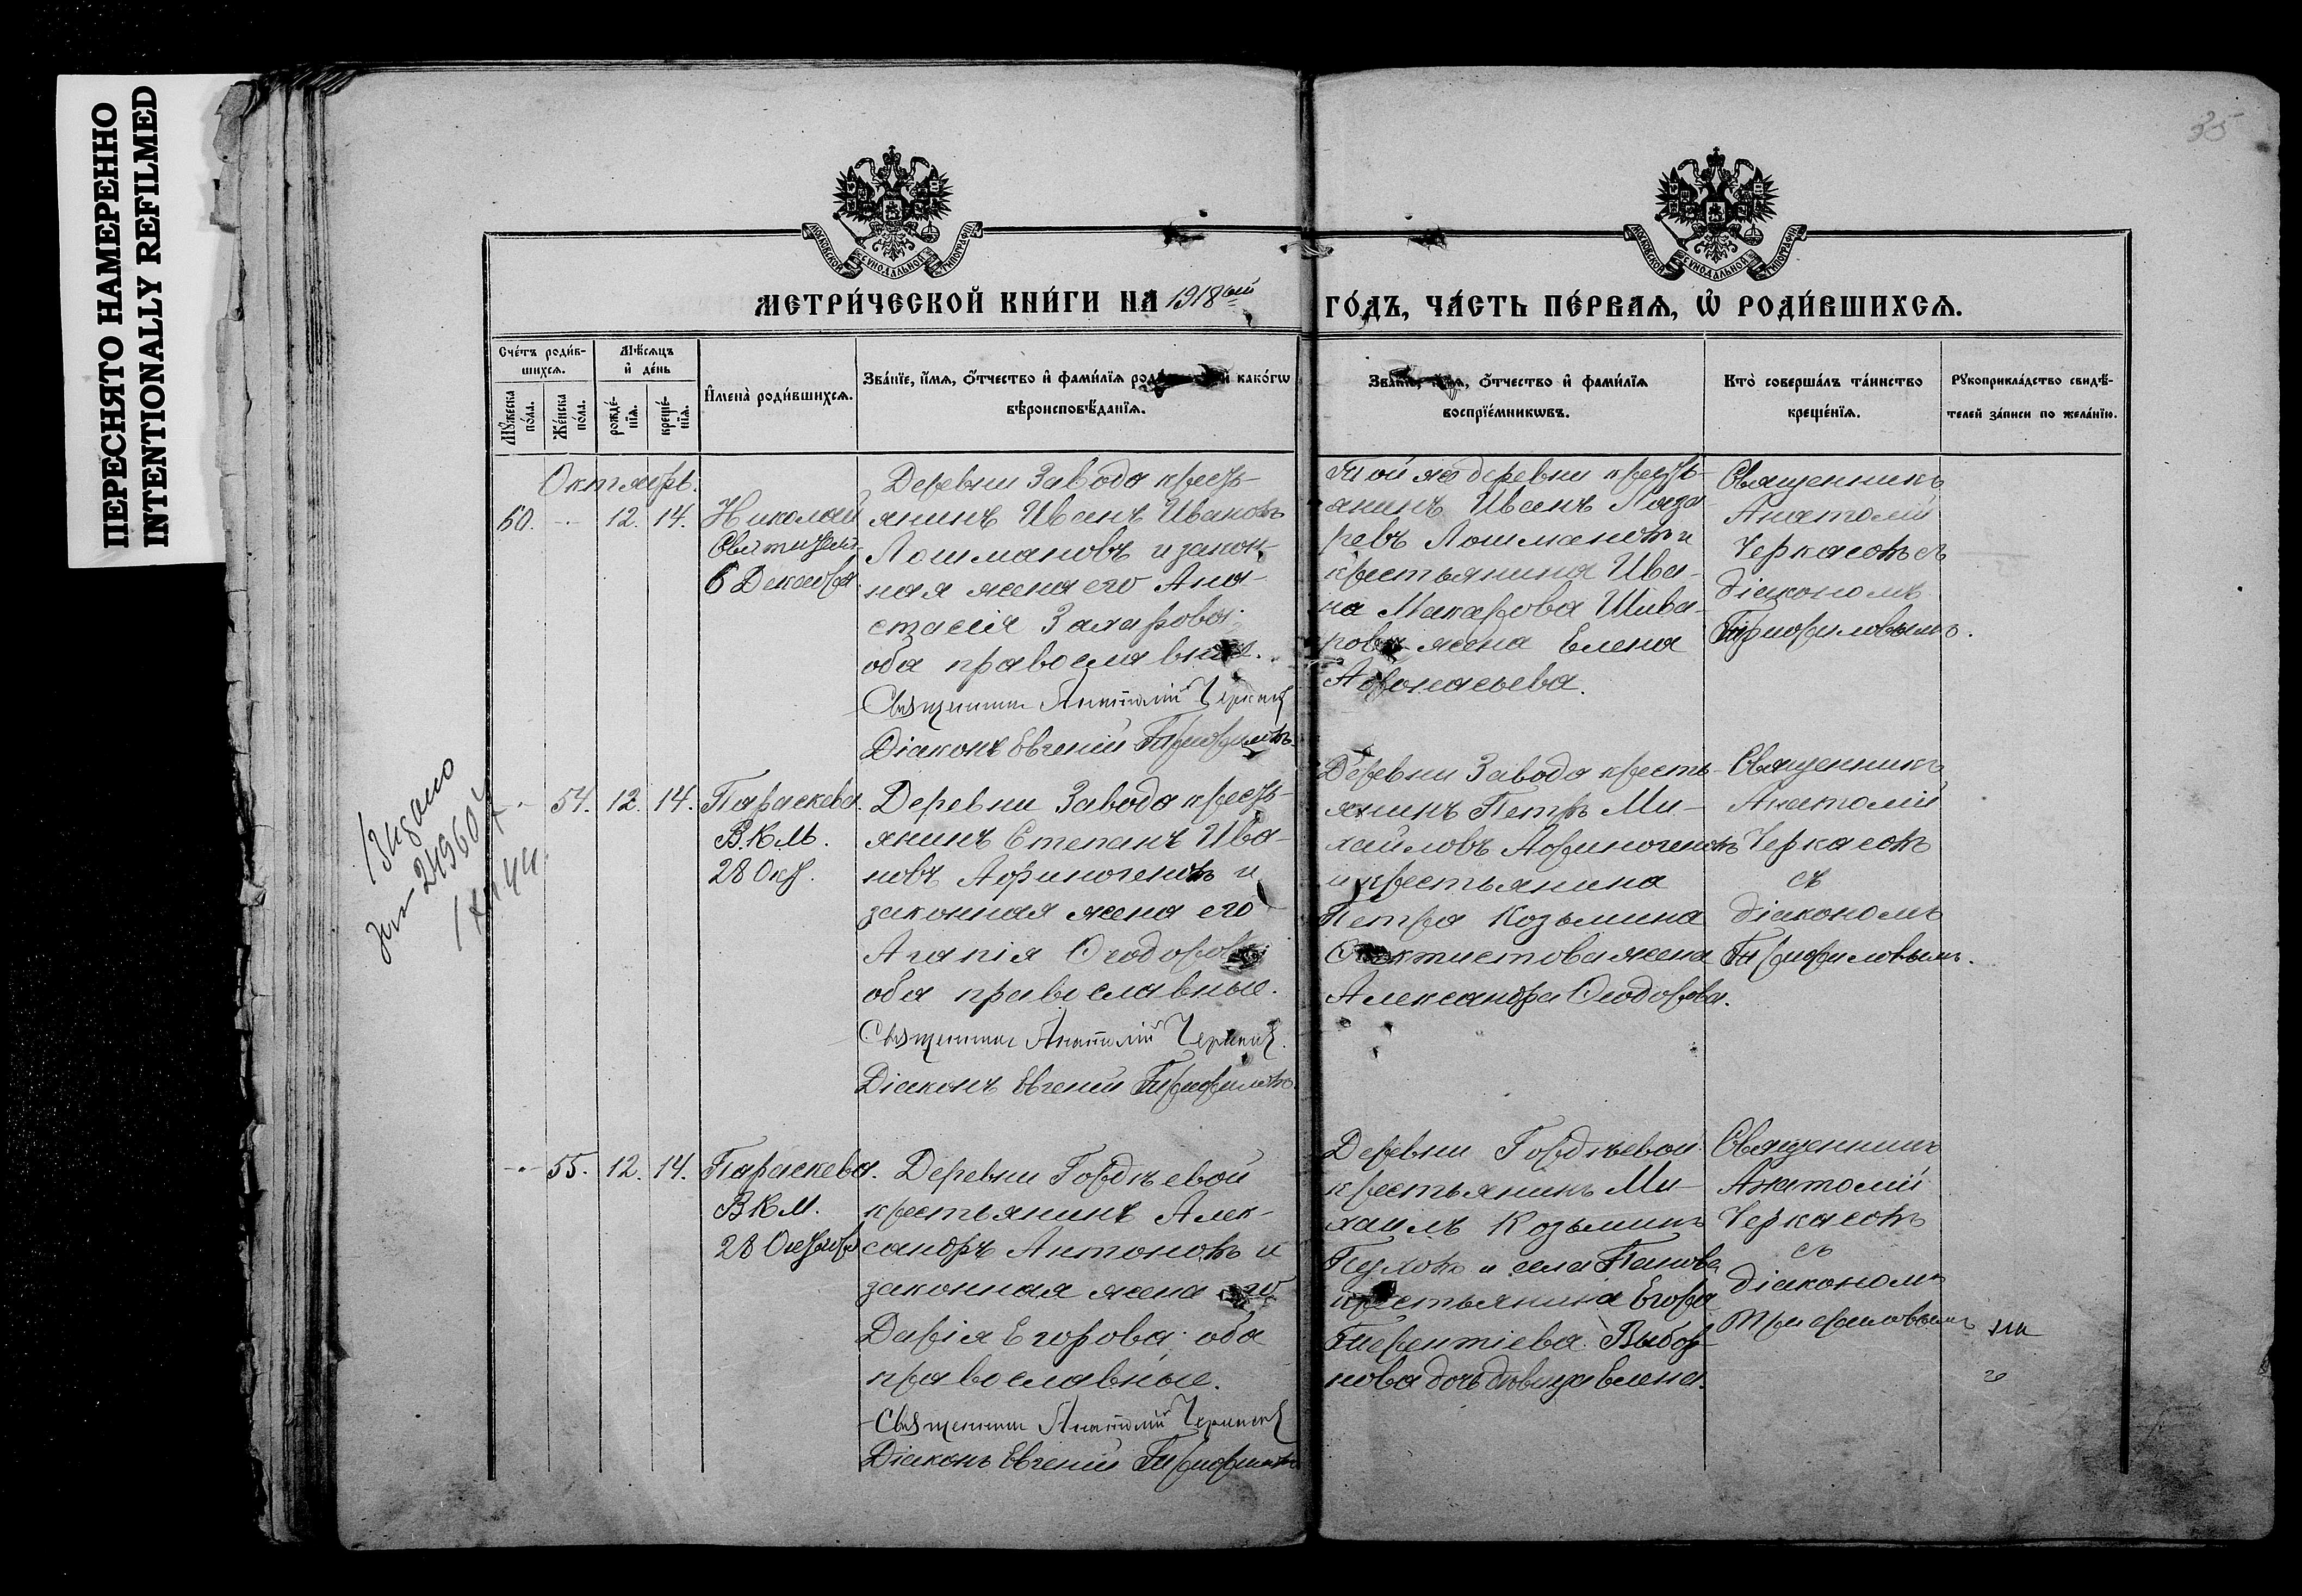 ПЕРЕСНЯТО НАМЕРЕННО
INTENTIONALLY REFILMED
35
МОСКОВСКОЙ СѴНОДАЛЬНОЙ ТИПОГРАФІИ
МОСКОВСКОЙ СѴНОДАЛЬНОЙ ТИПОГРАФІИ
МЕТРИ́ЧЕСКОЙ КНИ́ГИ НА 1918ый ГО́ДЪ, ЧА́СТЬ ПЕ́РВАЯ, Ѡ РОДИ́ВШИХСЯ.
Сче́тъ роди́в-
шихся.
Му́жеска по́ла.
Же́нска по́ла.
Мѣ́сяцъ
и де́нь
рожде́-
нїя.
креще́-
нїя.
Имена̀ роди́вшихся.
Зва́нїе, и́мя, ѻ́тчество и фами́лїя и како́гѡ
вѣроисповѣ́данїя.
Зва́нїе, и́мя, ѻ́тчество и фами́лїя
воспрїе́мникѡвъ.
Кто̀ соверша́лъ та́инство
креще́нїя.
Рꙋкоприкла́дство свидѣ́-
телей за́писи по жела́нїю.
Октябрь.
60. - 12. 14. Николай
Святитель
6 Декабря.
Деревни Завода кресть-
янинъ Иванъ Ивановъ
Лошмановъ и закон-
ная жена его Ана-
стасія Захарова
оба православные.
Священникъ Анатолій Черкасовъ
Діаконъ Евгеній Трифиловъ.
Той же деревни кресть-
янинъ Иванъ Лаза-
ревъ Лошмановъ и
крестьянина Ива-
на Макарова Шива-
рова жена Елена
Афонасьева.
Священникъ
Анатолій
Черкасовъ съ
діакономъ
Трифиловымъ.
Выдано
249604
- 54. 12. 14. Параскева
В.К.М.
28 Окт.
Деревни Завода кресть-
янинъ Степанъ Ива-
новъ Афиногеновъ и
законная жена его
Агапія Ѳеодорова
оба православные.
Священникъ Анатолій Черкасовъ.
Діаконъ Евгеній Трифиловъ.
Деревни Завода кресть-
янинъ Петръ Ми-
хайловъ Афиногеновъ
и крестьянина
Петра Козьмина
Ѳеоктистова жена
Александра Ѳеодорова.
Священникъ
Анатолій
Черкасовъ
съ
діакономъ
Трифиловымъ.
- 55. 12. 14. Параскева.
В.К.М.
28 Октября
Деревни Гордѣевой
крестьянинъ Алек-
сандръ Антоновъ и
законная жена его
Дарія Егорова оба
православные.
Священникъ Анатолій Черкасовъ
Діаконъ Евгеній Трифиловъ
Деревни Гордѣевой
крестьянинъ Ми-
хаилъ Козьминъ
и села Панова
крестьянина Егора
Терентіева Выбор-
нова дочь дѣвица Елена.
Священникъ
Анатолій
Черкасовъ
съ
діакономъ
Трифиловымъ